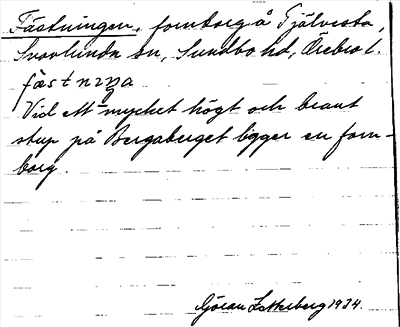 Fästningen, fornborg å Tjälvesta,
Svovlunda sn, Sundbo hd, Örebro l.
fästnıŋa
Vid ett mycket högt och brant
stup på Bergaberget ligger en forn-
borg.
Göran 1934.